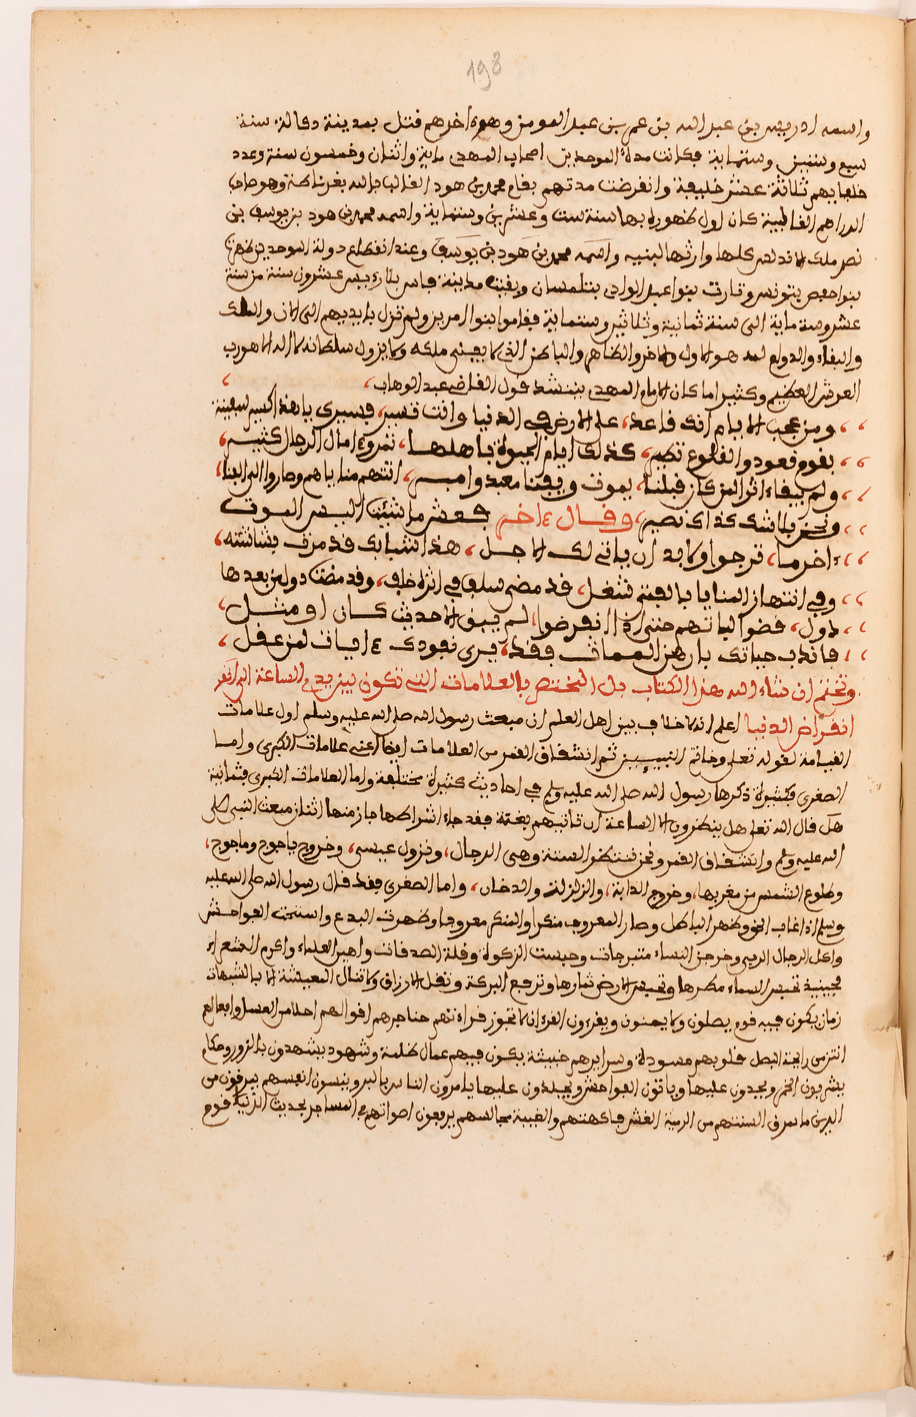 198
واسمه ادريس بن عبد الله بن عمر بن عبد المومن وهو اخرهم فتل بمدينة دفالة سنة
سبع وستين وستماية فكانت مدة الموحدين اصحاب المهدى ماية واثنان وخمسون سنة وعدد
خلفايهم ثلاثة عشر خليفة وانفرضت مدتهم بفام محمد بن هود الغالب بالله بغرناطة وهو صاحب
الدراهم الغالبية كان اول ظهوره بها سنة ست وعشرين وستماية واسمه محمد بن هود بن يوسف بن
نصر ملك الاندلس كلها وارثها لبنيه واسمه محمد بن هود بن يوسف وعند انفطاع دولة الموحدين ظهرت
بنوا حفص بتونس وثارت بنوا عبد الوادى بتلمسان وبفيت مدينة فاس بلا رييس عشرون سنة من سنة
عشر وستماية الى سنة ثمانية وثلاثين وستماية ففاموا بنوا مرين ولم تزل بايديهم الى الان والملك
والبفاء والدوام لمن هو الاول والاخر والظاهر والباطن الذى لا يفنى ملكه ولا يزول سلطانه لا اله الا هو رب
العرش العظيم وكثيرا ما كان الامام المهدى ينشد فول الفاضى عبد الوهاب
ومن عجب الايام انك فاعد، على الارض فى الدنيا وانت تسير، فسيرى يا هذا كسير سفينة
بفوم فعود والفلوع تطير، كذلك ايام الحيوة باهلها، تمر و امال الرجال كثيرة
ولم يبفا اثر لمن كان فبلنا، يموت ويفنا معبد وامير، اتتهم مناياهم وصاروا الى البلا
ونحن بلا شك كذاك نصير، وفال اخر فعش ما شيت البس الموت
اخر ما، ترجوا ولا بد ان ياتى لك الاجل، هذا شبابك فد مرت بشاشته،
وفى انتهاز المنايا بالفتى شغل، فد مضى سلف فى اثره خلف، وفد مضت دول من بعدها
دول، فضوا لباتهم حتى اذا انفرضوا، لم يبق الا حديث كان او مثل
فاندب حياتك بل رهن الممات ففد، يرى نفودك ايات لمن عفل،
ونختم ان شاء الله هذا الكتاب بل المختصر بالعلامات التى تكون بين يدى الساعة الى اخر
انفراض الدنيا اعلم انه لا خلاف بين اهل العلم ان مبعث رسول الله صلى الله عليه وسلم اول علامات
الفيامة لفوله تعلى وخاتم النبيين ثم انشفاق الفمر من العلامات ايضا اعنى علامات الكبرى واما
الصغرى فكثيرة ذكرها رسول الله صلى الله عليه وسلم فى احاديث كثيرة مختلفة واما العلامات الكبرى فثمانية
هل فال الله تعلى هل ينظرون الا الساعة ان تاتيهم بغتة ففد جاء اشراطها جاز منها اثنان مبعث النبى صلى
الله عليه وسلم وانشفاق الفمر ونحن ننتظر الستة وهى الدجال، ونزول عيسى، وخروج ياجوج وماجوج،
وطلوع الشمس من مغربها، وخروج الدابة، والزلزلة والدخان، واما الصغرى ففد فال رسول الله صلى الله عليه
وسلم اذا غاب الحق وظهر الباطل وصار المعروف منكرا والمنكر معروفا وظهرت البدع واستحلت الفواحش
واكل الرجال الربى وخرجن النساء متبرجات وحبست الزكوة وفلة الصدفات واهين العلماء واكرم الشعراء
فحينيذ تحبس السماء مطرها وتحبس الارض ثمارها وترجع البركة وتفل الارزاق ولا تنال المعيشة الا بالشبهات
زمان يكون فيه فوم يصلون ولا يومنون ويفرءون الفرءان لا تجوز فراءتهم حناجرهم افوالهم احلا من العسل وافعالهم
انتن من رايحة البصل فلوبهم مسودة وسرايرهم خبيثة يكون فيهم عمال ظلمة وشهود يشهدون بالزور وحكام
يشربون الخمر ويجدون عليها وياتون الفواحش ويجلدون عليها يامرون الناس بالبر وينسون انفسهم يمرفون من
الدين ما تمرق السنتهم من الرمية الغش فاكهتهم والغيبة مجالسهم يرفعون اصواتهم فى المساجد بحديث الدنيا فوم